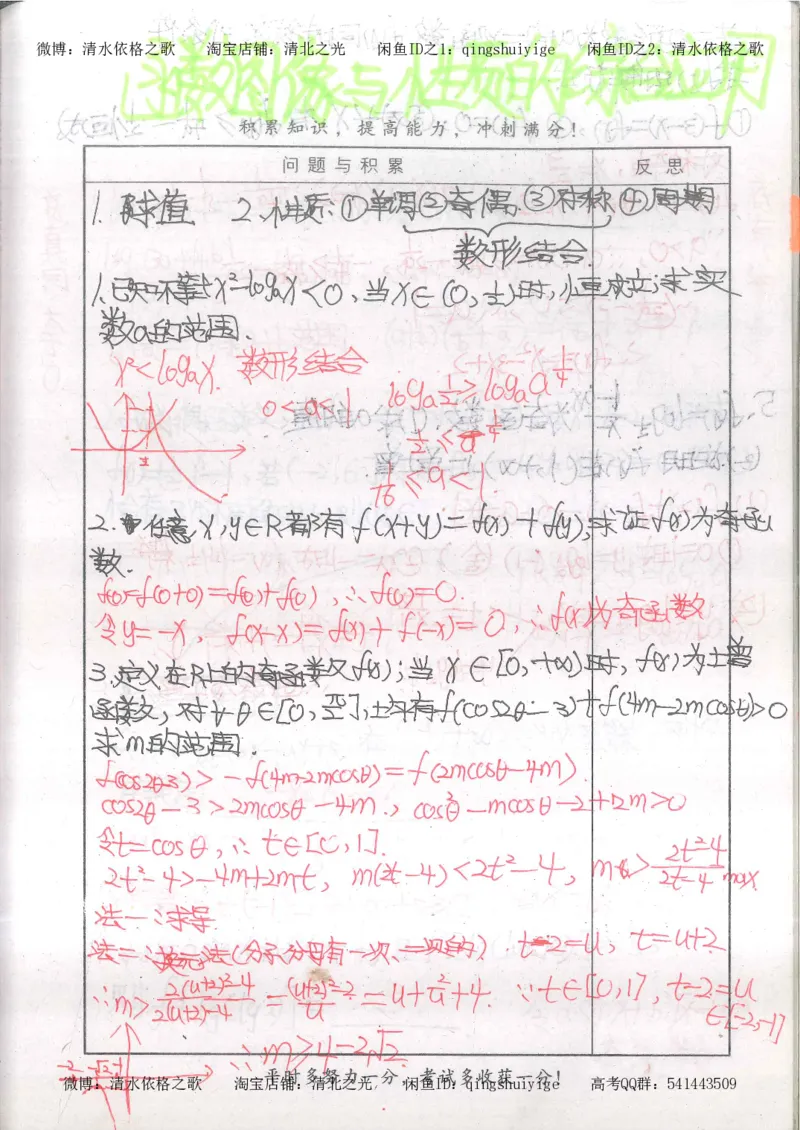 微博：清水依格之歌 淘宝店铺：清北之光 闲鱼ID之1：qingshuiyige 闲鱼ID之2：清水依格之歌
函数图像与性质的综合应用
积累知识，提高能力，冲刺满分！
问题与积累 反思
1. 赋值 2. 性质：①单调②奇偶③对称④周期
数形结合
1. 已知不等式x²-logₐx<0，当x∈(0,½)时，恒成立；求实
数a的范围．
x²<logₐx. 数形结合
0<a<1
logₐ½≥logₐa^¼
½≤a^¼
1/16≤a<1
2. 任意x,y∈R都有f(x+y)=f(x)+f(y),求证f(x)为奇函
数．
f(0)=f(0+0)=f(0)+f(0)，∴f(0)=0．
令y=-x，f(x-x)=f(x)+f(-x)=0，∴f(x)为奇函数
3. 定义在R上的奇函数f(x)；当x∈[0,+∞)时，f(x)为土曾
函数，对∀θ∈[0,π/2],均有f(cos2θ-3)+f(4m-2mcosθ)>0
求m的范围．
f(cos2θ-3)>-f(4m-2mcosθ)=f(2mcosθ-4m)
cos2θ-3>2mcosθ-4m., cos²θ-mcosθ-2+2m>0
令t=cosθ，∴t∈[0,1].
2t²-4>-4m+2mt, m(2t-4)<2t²-4, m>(2t²-4)/(2t-4) max
法一：求导
法二：换元法(分子、分母有一次、二次的) t-2=u，t=u+2
∴m>(2(u+2)²-4)/(2(u+2)-4)=((u+2)²-2)/u=u+2/u+4. ∵t∈[0,1]，t-2=u
∈[-2,-1]
-2 -√2 -1
∴m≥4-2√2.
平时多努力一分，考试多收获一分！
微博：清水依格之歌 淘宝店铺：清北之光 闲鱼ID：qingshuiyige 高考QQ群：541443509